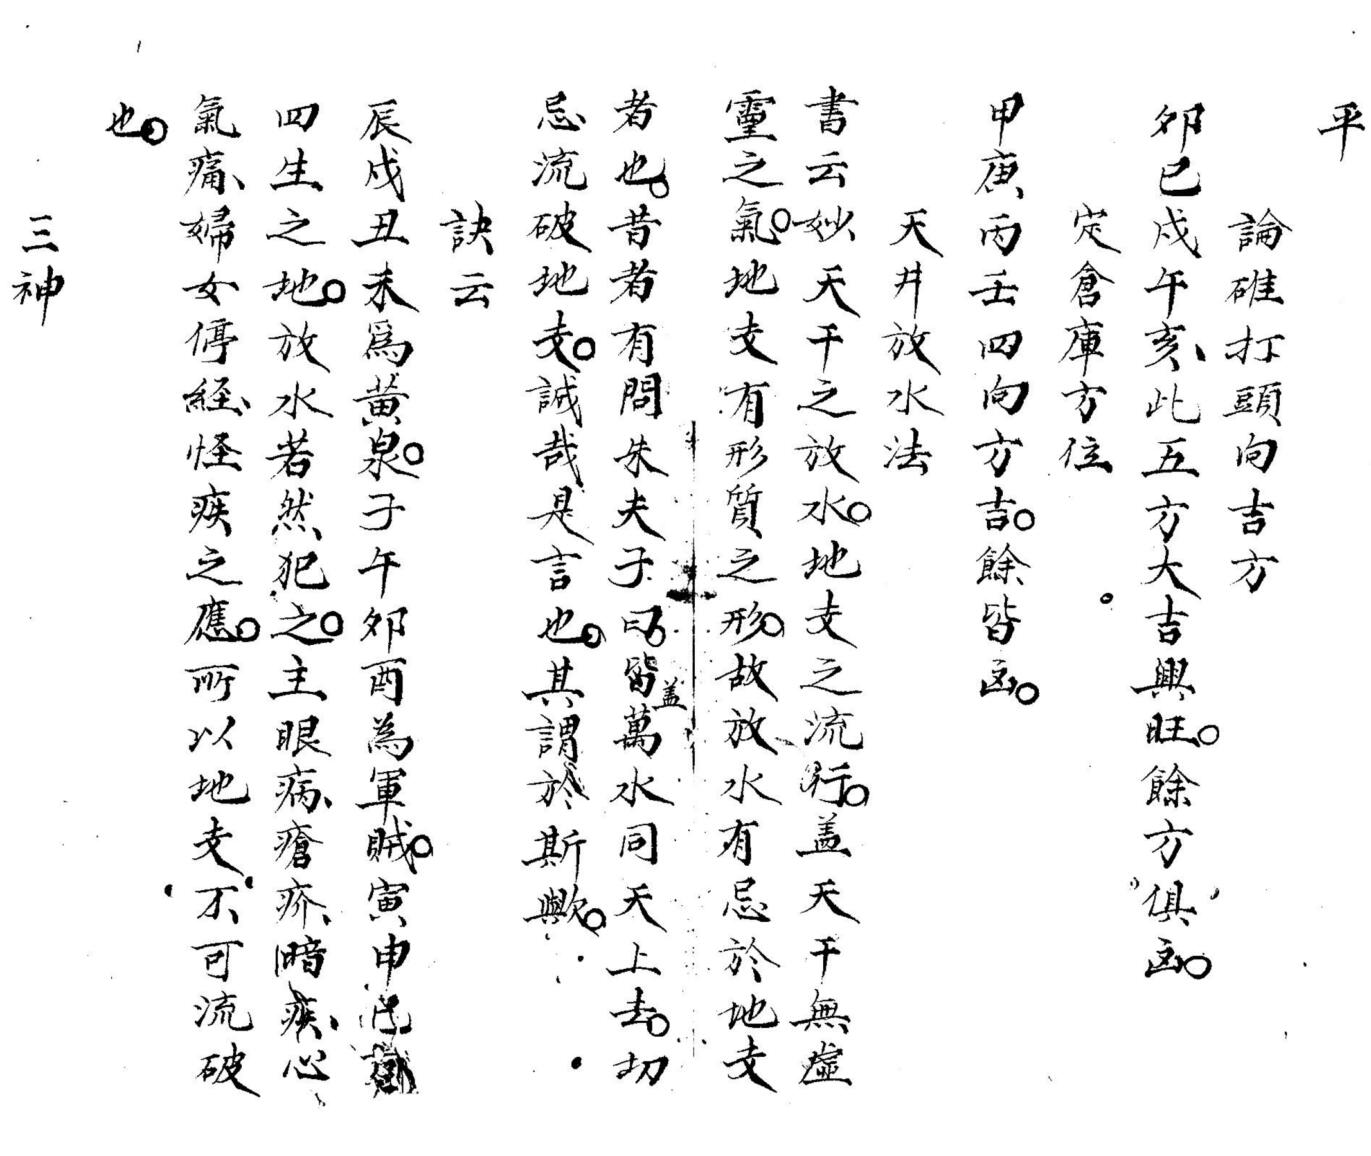 平
論碓打頭向吉方
卯巳戍午亥、此五方大吉興旺。餘方俱凶。
定倉庫方位
甲庚丙壬四向方吉。餘皆凶。
天井放水法
書云妙天干之放水。地支之流行。盖天干無虛
靈之氣。地支有形質之形。故放水有忌於地支
者也。昔者有問朱夫子曰。盖皆萬水同天上去。切
忌流破地支。誠哉是言也。其謂於斯歟。
訣云
辰戍丑未爲黄泉。子午卯酉為軍賊。寅申巳亥
四生之地。放水若然犯之。主眼病、瘡疥、暗疾、心
氣痛、婦女停經、怪疾之應。所以地支不可流破
也。
三神